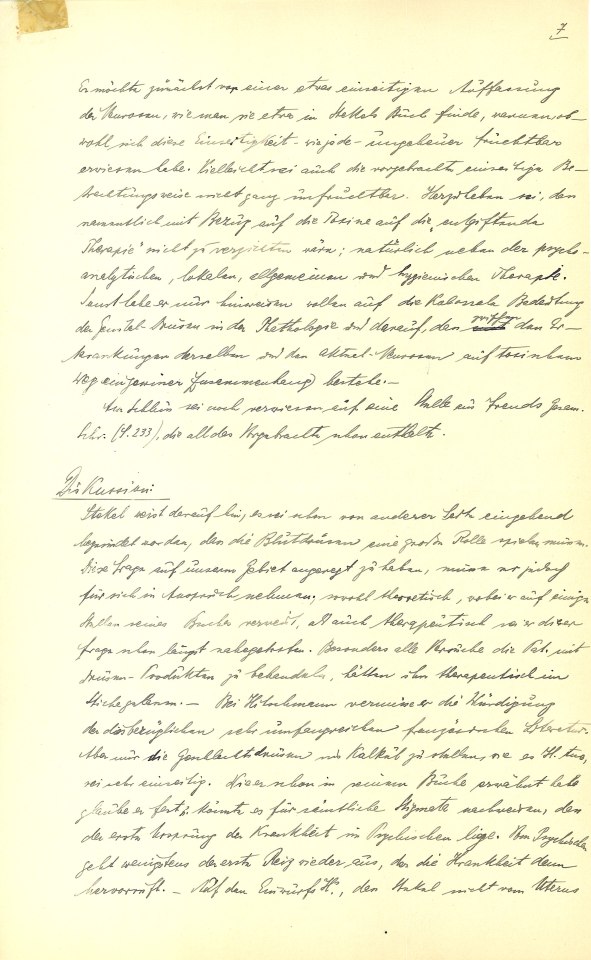 7
Er möchte zunächst vor einer etwas einseitigen Auffassung
der Neurosen, wie man sie etwa in Stekels Buch finde, warnen, ob-
wohl sich diese Einseitigkeit - wie jede - ungeheuer fruchtbar
erwiesen habe. Vielleicht sei auch die vorgebrachte einseitige Be-
trachtungsweise nicht ganz unfruchtbar. Hervorzuheben sei, dass
namentlich mit Bezug auf die Toxine auf die „entgiftende
Therapie" nicht zu verzichten wäre; natürlich neben der psycho-
analytischen, lokalen, allgemeinen und hygienischen Therapie.
Sonst habe er nur hinweisen wollen auf die kolossale Bedeutung
der Genital-Drüsen in der Pathologie und darauf, dass zwischen den Er-
krankungen derselben und den Aktual-Neurosen auf toxischem
Weg ein gewisser Zusammenhang bestehe.-
Am Schluss sei noch verwiesen auf eine Stelle aus Freuds Samm.
Schr. (S. 233), die all das Vorgebrachte schon enthalte.
Diskussion:
Stekel weist darauf hin, es sei schon von anderer Seite eingehend
begründet worden, dass die Blutdrüsen eine große Rolle spielen müssen.
Diese Frage auf unserm Gebiet angeregt zu haben, müsse er jedoch
für sich in Anspruch nehmen; sowohl theoretisch, wobei er auf einige
Stellen seines Buches verweist, als auch therapeutisch sei er dieser
Frage schon längst nahegetreten. Besonders alle Versuche die Pat. mit
Drüsen-Produkten zu behandeln, hätten ihn therapeutisch im
Stiche gelassen.- Bei Hitschmann vermisse er die Würdigung
der diesbezüglichen sehr umfangreichen französischen Literatur.
Aber nur die Geschlechtsdrüsen ins Kalkül zu stellen, wie es H. tue,
sei sehr einseitig. Wie er schon in seinem Buche erwähnt habe
glaube er fest, könnte es für sämtliche Stigmata nachweisen, dass
der erste Ursprung der Krankheit im Psychischen liege. Vom Psychischen
geht wenigstens der erste Reiz wieder aus, der die Krankheit dann
hervorruft.- Auf den Einwurf H's, dass Stekel nicht vom Uterus